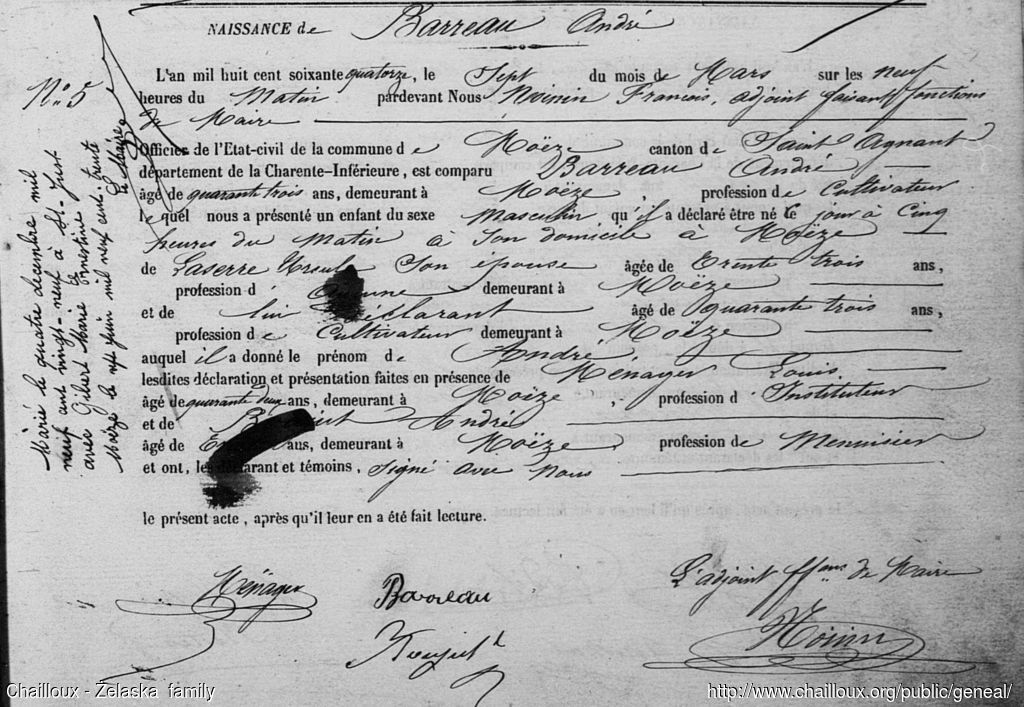 NAISSANCE de Barreau André
N° 5
L'an mil huit cent soixante quatorze, le Sept du mois de Mars sur les neuf
heures du Matin pardevant Nous Noinin Francois, adjoint faisant fonctions
de Maire
Officier de l'Etat-civil de la commune de Moëze canton de Saint Agnant
département de la Charente-Inférieure, est comparu Barreau André
âgé de quarante trois ans, demeurant à Moëze profession de Cultivateur
le quel nous a présenté un enfant du sexe Masculin qu'il a déclaré être né ce jour à Cinq
heures du Matin à Son domicile à Moëze
de Laserre Ursule Son épouse âgée de Trente trois ans,
profession d demeurant à Moëze
et de lui Déclarant âgé de quarante trois ans,
profession de Cultivateur demeurant à Moëze
auquel il a donné le prénom de André
lesdites déclaration et présentation faites en présence de Ménager Louis
âgé de quarante deux ans, demeurant à Moëze, profession d Instituteur
et de André
âgé de ans, demeurant à Moëze profession de Menuisier
et ont, les déclarant et témoins, Signé avec Nous
le présent acte, après qu'il leur en a été fait lecture.
Ménager
Barreau
L'adjoint ffans de Maire
Noinin
Marié le quatre décembre mil
neuf cent vingt-neuf à St-Just
avec Gibert Marie Ernestine
Moëze le juin mil neuf cent trente
Le Maire
Chailloux - Zelaska family
http://www.chailloux.org/public/geneal/